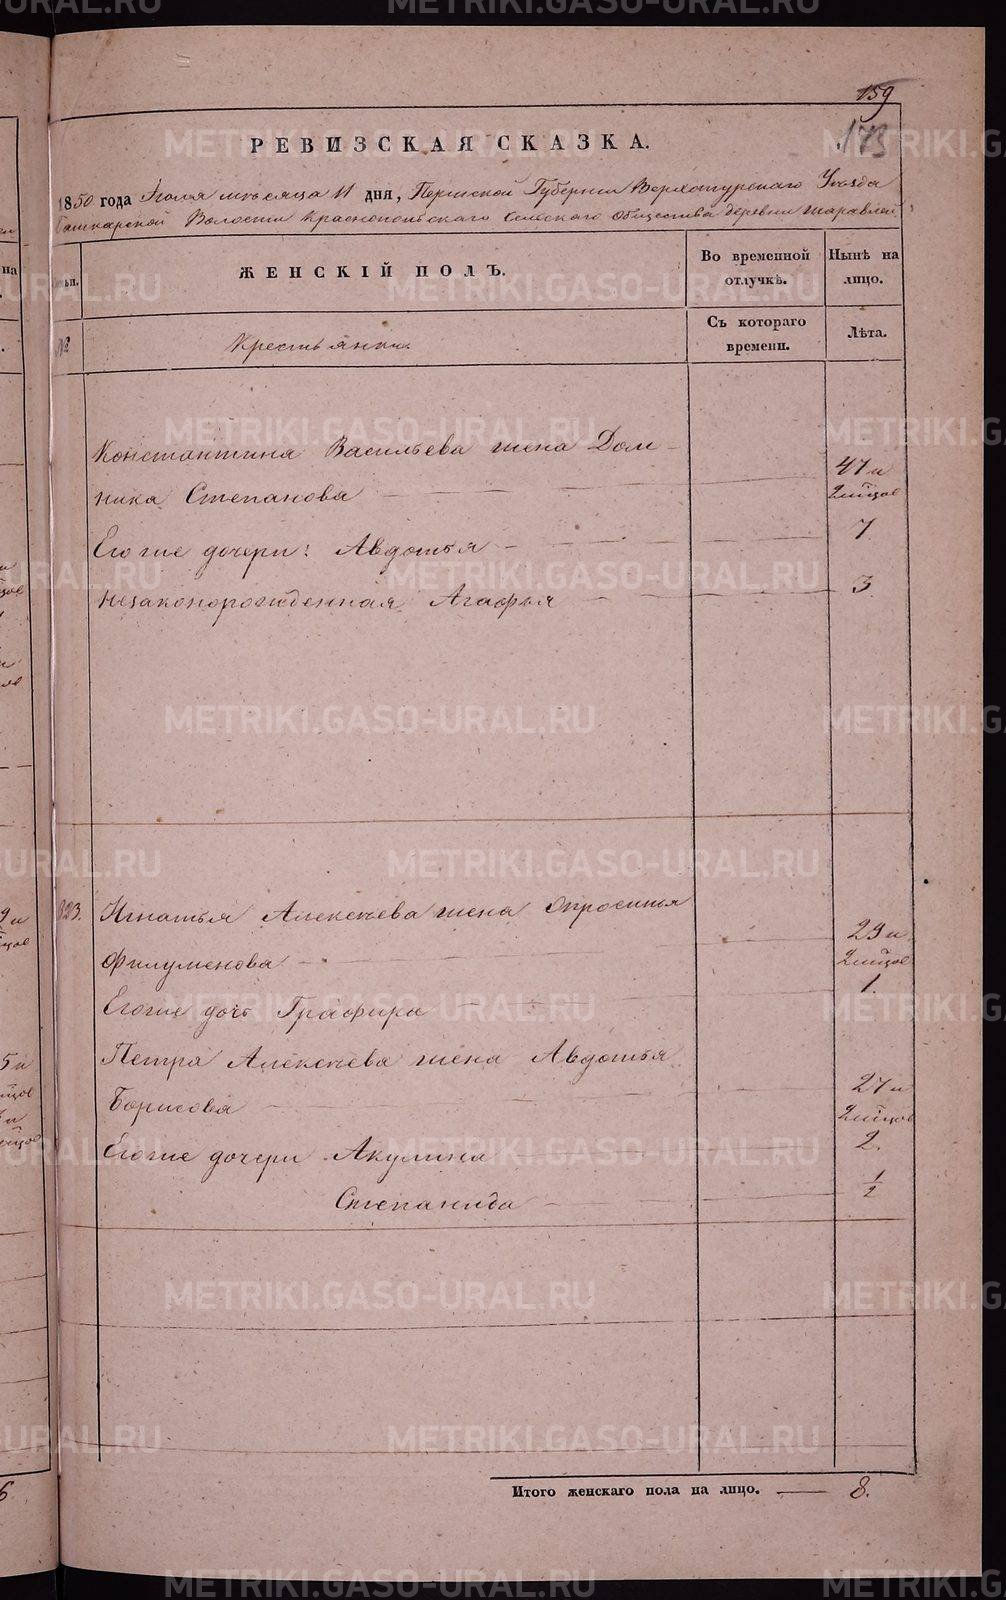 159
173
РЕВИЗСКАЯ СКАЗКА.
1850 года Іюля мѣсяца 11 дня, Пермской Губерніи Верхотурскаго Уѣзда
Башкарской Волости Краснопольскаго Сельскаго Общества деревни
ЖЕНСКІЙ ПОЛЪ.
Во временной отлучкѣ.
Нынѣ на лицо.
№
Крестьянки.
Съ котораго времени.
Лѣта.
Константина Васильева жена Дом-
ника Степанова 47 и 2 мѣсцов
Его же дочери: Авдотья 7.
незаконорожденная Агафья 3.
323. Игнатья Алексѣева жена Опросинья
Филуменова 29 и 2 мѣсцов
Его же дочь Графира 1.
Петра Алексѣева жена Авдотья
Борисова 27 и 2 мѣсцов
Его же дочери Акулина 2.
Степанида 1/2
Итого женскаго пола на лицо. 8.
METRIKI.GASO-URAL.RU